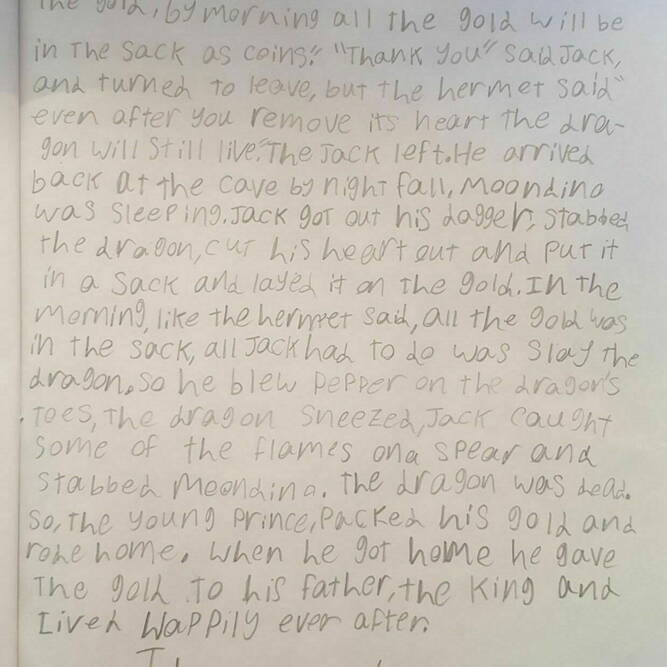 the gold, by morning all the gold will be
in The sack as coins." "Thank you" said Jack,
and turned to leave, but the hermet said"
even after you remove its heart the dra-
gon will still live."The Jack left. He arrived
back at the cave by night fall, Moondino
was sleeping. Jack got out his dagger, stabbed
the dragon, cut his heart out and put it
in a sack and layed it on the gold. In the
morning, like the hermet said, all the gold was
in the sack, all Jack had to do was slay the
dragon. So he blew pepper on the dragon's
toes, The dragon sneezed, Jack caught
some of the flames on a spear and
stabbed Moondino. The dragon was dead.
So, the young prince, packed his gold and
rode home. When he got home he gave
The gold to his father, the King and
Lived Happily ever after.